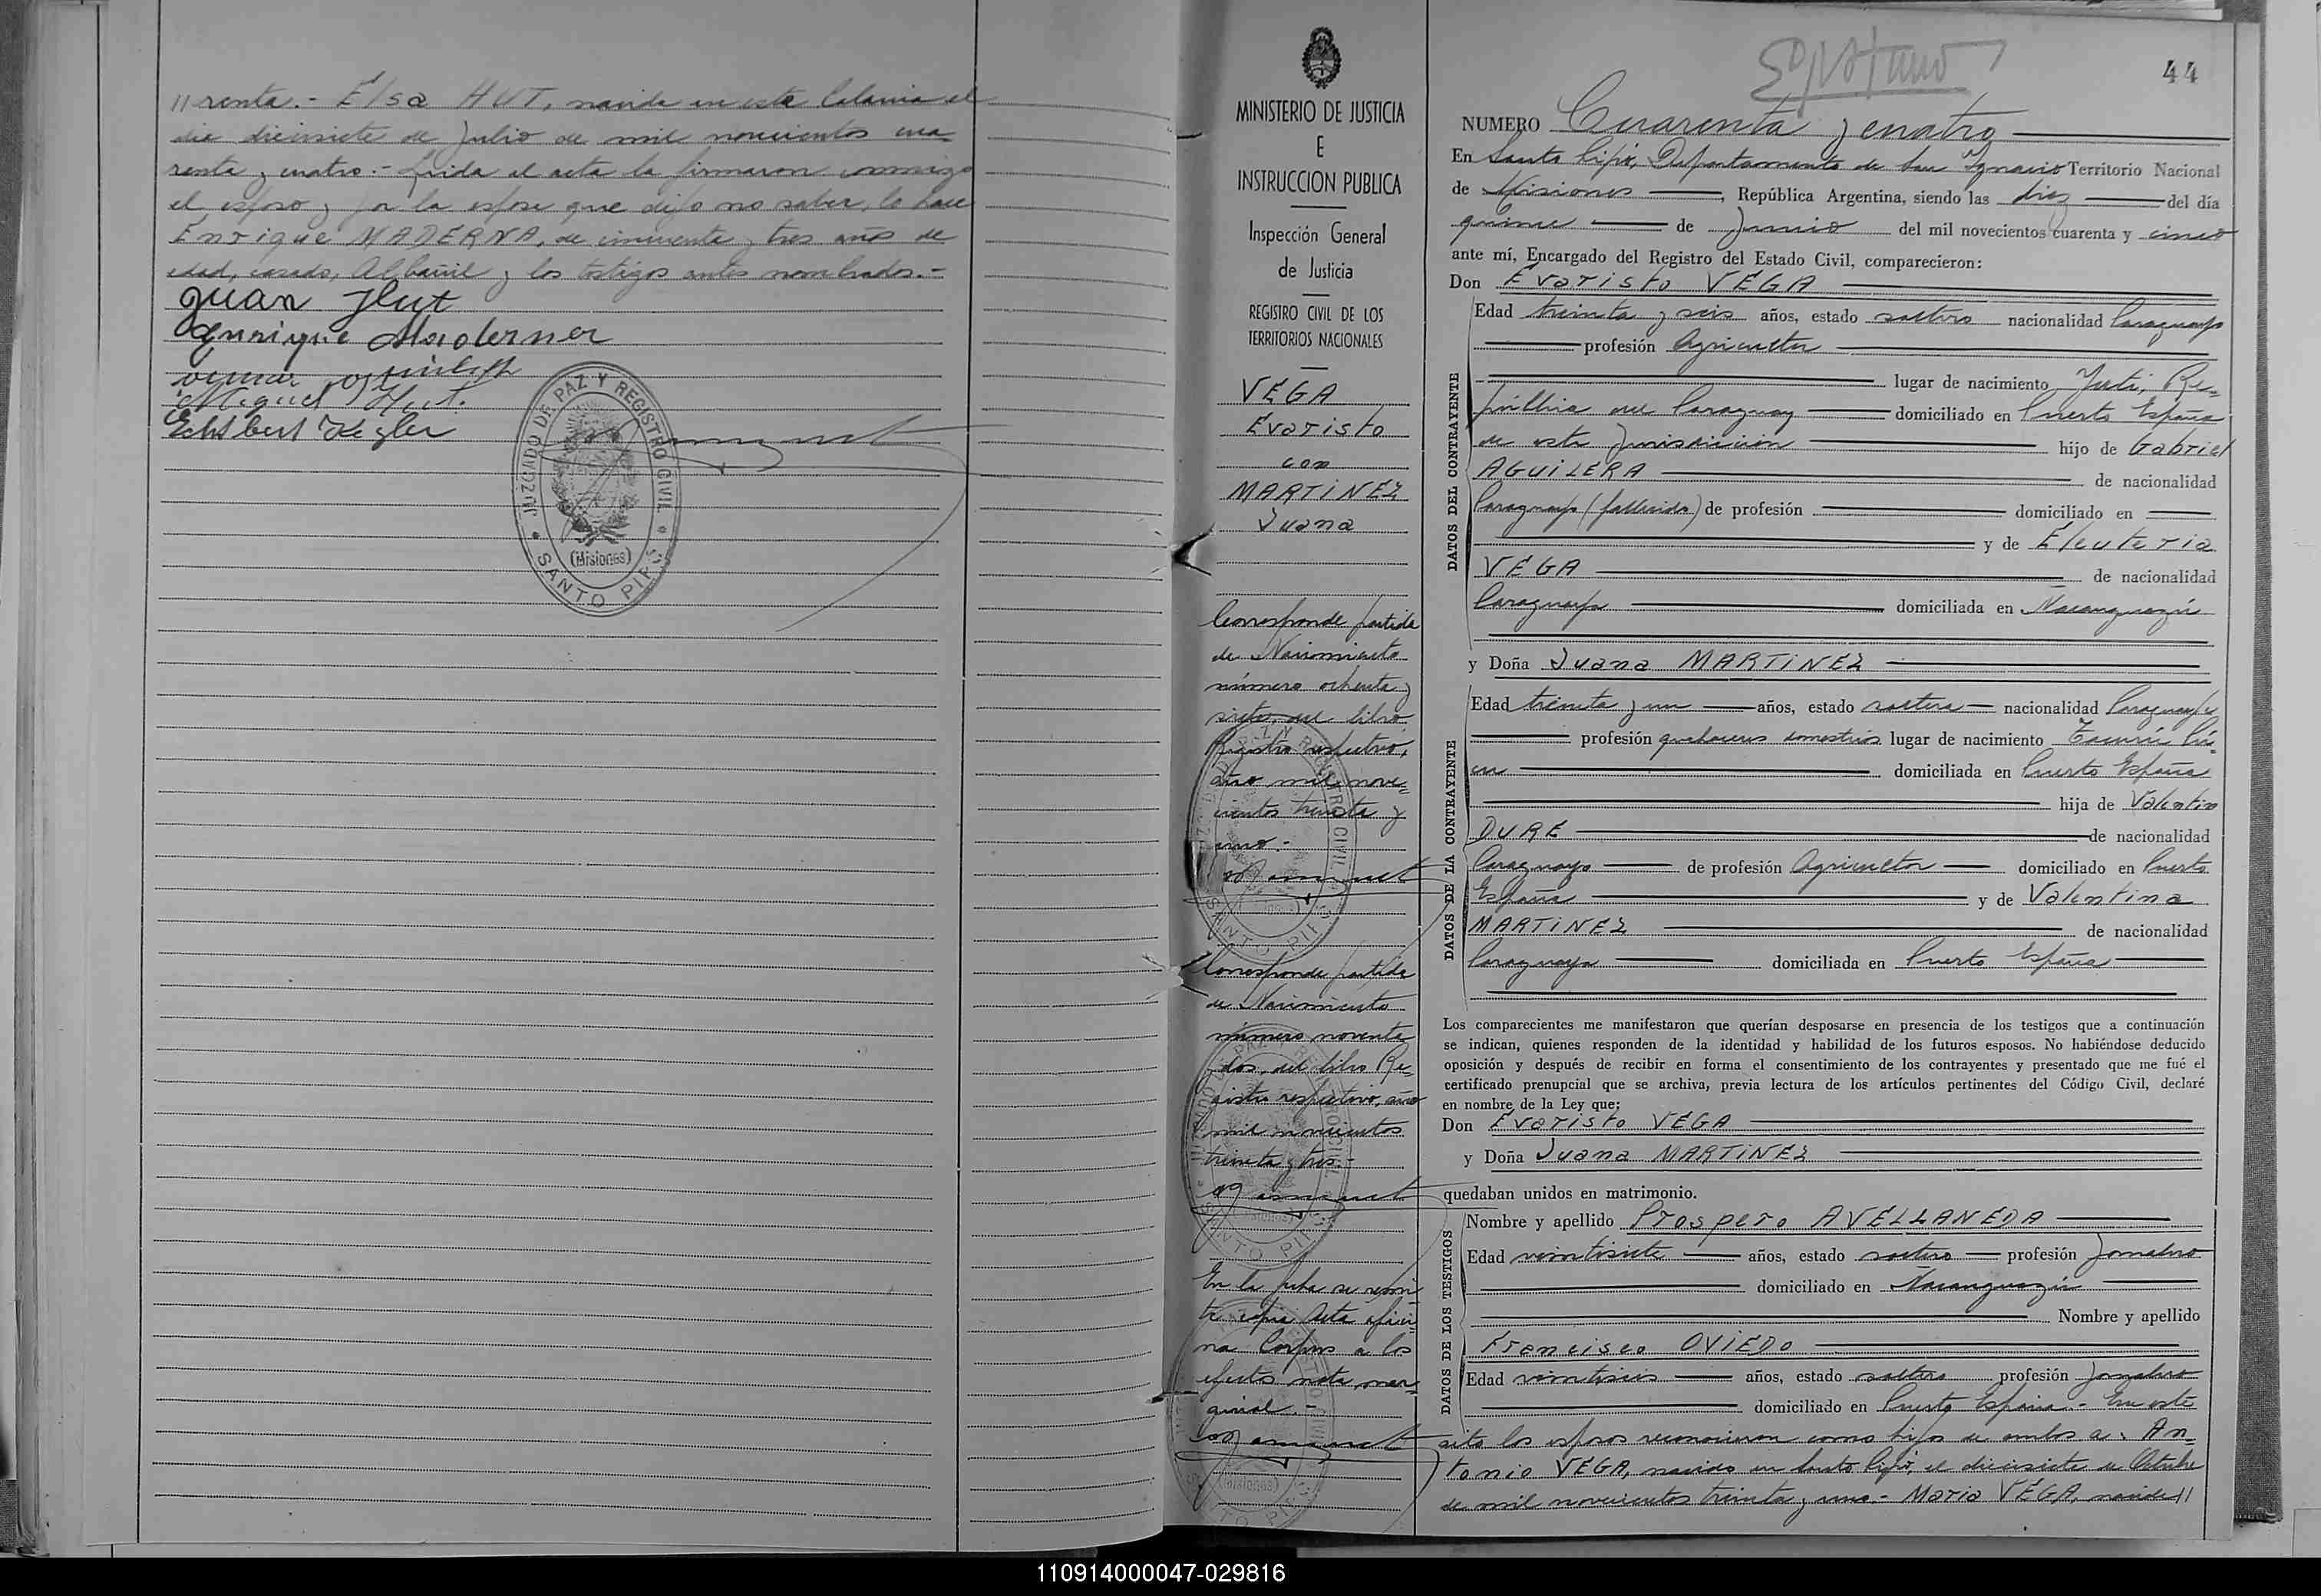 //renta.- Elsa HUT, nacida en esta Colonia el
dia diecisiete de Julio de mil novecientos cua
renta y cuatro.- Leida el acta la firmaron conmigo
el esposo y por la esposa que dijo no saber, lo hace
Enrique MADERNA, de cincuenta y tres años de
edad, casado, Albañil y los testigos antes nombrados.-
Juan Hut
Enrique Maderner
Miguel Hut
Kegler
JUZGADO DE PAZ Y REGISTRO CIVIL
(Misiones)
SANTO PIPÓ
MINISTERIO DE JUSTICIA
E
INSTRUCCION PUBLICA
Inspección General
de Justicia
REGISTRO CIVIL DE LOS
TERRITORIOS NACIONALES
VEGA
Evaristo
con
MARTINEZ
Juana
Corresponde partida
de Nacimiento
número ochenta y
siete, del libro
Registro respectivo,
año mil nove-
cientos treinta y
uno.-
Corresponde partida
de Nacimiento
número noventa
y dos, del libro Re-
gistro respectivo, año
mil novecientos
treinta y tres.-
En la fecha se remi-
te copia Acta ofici-
na Corpus a los
efectos nota mar-
ginal.-
44
NUMERO Cuarenta y cuatro
En Santo Pipó, Departamento de San Ignacio Territorio Nacional
de Misiones, República Argentina, siendo las diez del día
quince de Junio del mil novecientos cuarenta y cinco
ante mí, Encargado del Registro del Estado Civil, comparecieron:
Don Evaristo VEGA
DATOS DEL CONTRAYENTE
Edad treinta y seis años, estado soltero nacionalidad Paraguayo
profesión Agricultor
lugar de nacimiento Yuti, Re-
pública del Paraguay domiciliado en Puerto España
de esta Jurisdicción hijo de Gabriel
AGUILERA de nacionalidad
Paraguayo (fallecido) de profesión domiciliado en
y de Eleuteria
VEGA de nacionalidad
Paraguaya domiciliada en Ñacanguazú
y Doña Juana MARTINEZ
DATOS DE LA CONTRAYENTE
Edad treinta y un años, estado soltera nacionalidad Paraguaya
profesión quehaceres domesticos lugar de nacimiento
domiciliada en Puerto España
hija de Valentin
DURE de nacionalidad
Paraguayo de profesión Agricultor domiciliado en Puerto
España y de Valentina
MARTINEZ de nacionalidad
Paraguaya domiciliada en Puerto España
Los comparecientes me manifestaron que querían desposarse en presencia de los testigos que a continuación
se indican, quienes responden de la identidad y habilidad de los futuros esposos. No habiéndose deducido
oposición y después de recibir en forma el consentimiento de los contrayentes y presentado que me fué el
certificado prenupcial que se archiva, previa lectura de los artículos pertinentes del Código Civil, declaré
en nombre de la Ley que:
Don Evaristo VEGA
y Doña Juana MARTINEZ
quedaban unidos en matrimonio.
DATOS DE LOS TESTIGOS
Nombre y apellido Prospero AVELLANEDA
Edad veintisiete años, estado soltero profesión Jornalero
domiciliado en Ñacanguazú
Nombre y apellido
Francisco OVIEDO
Edad veintiseis años, estado soltero profesión Jornalero
domiciliado en Puerto España.- En este
acto los esposos reconocieron como hijos de ambos a: An-
tonio VEGA, nacido en Santo Pipó, el diecisiete de Octubre
de mil novecientos treinta y uno.- Maria VEGA, nacida//
110914000047-029816